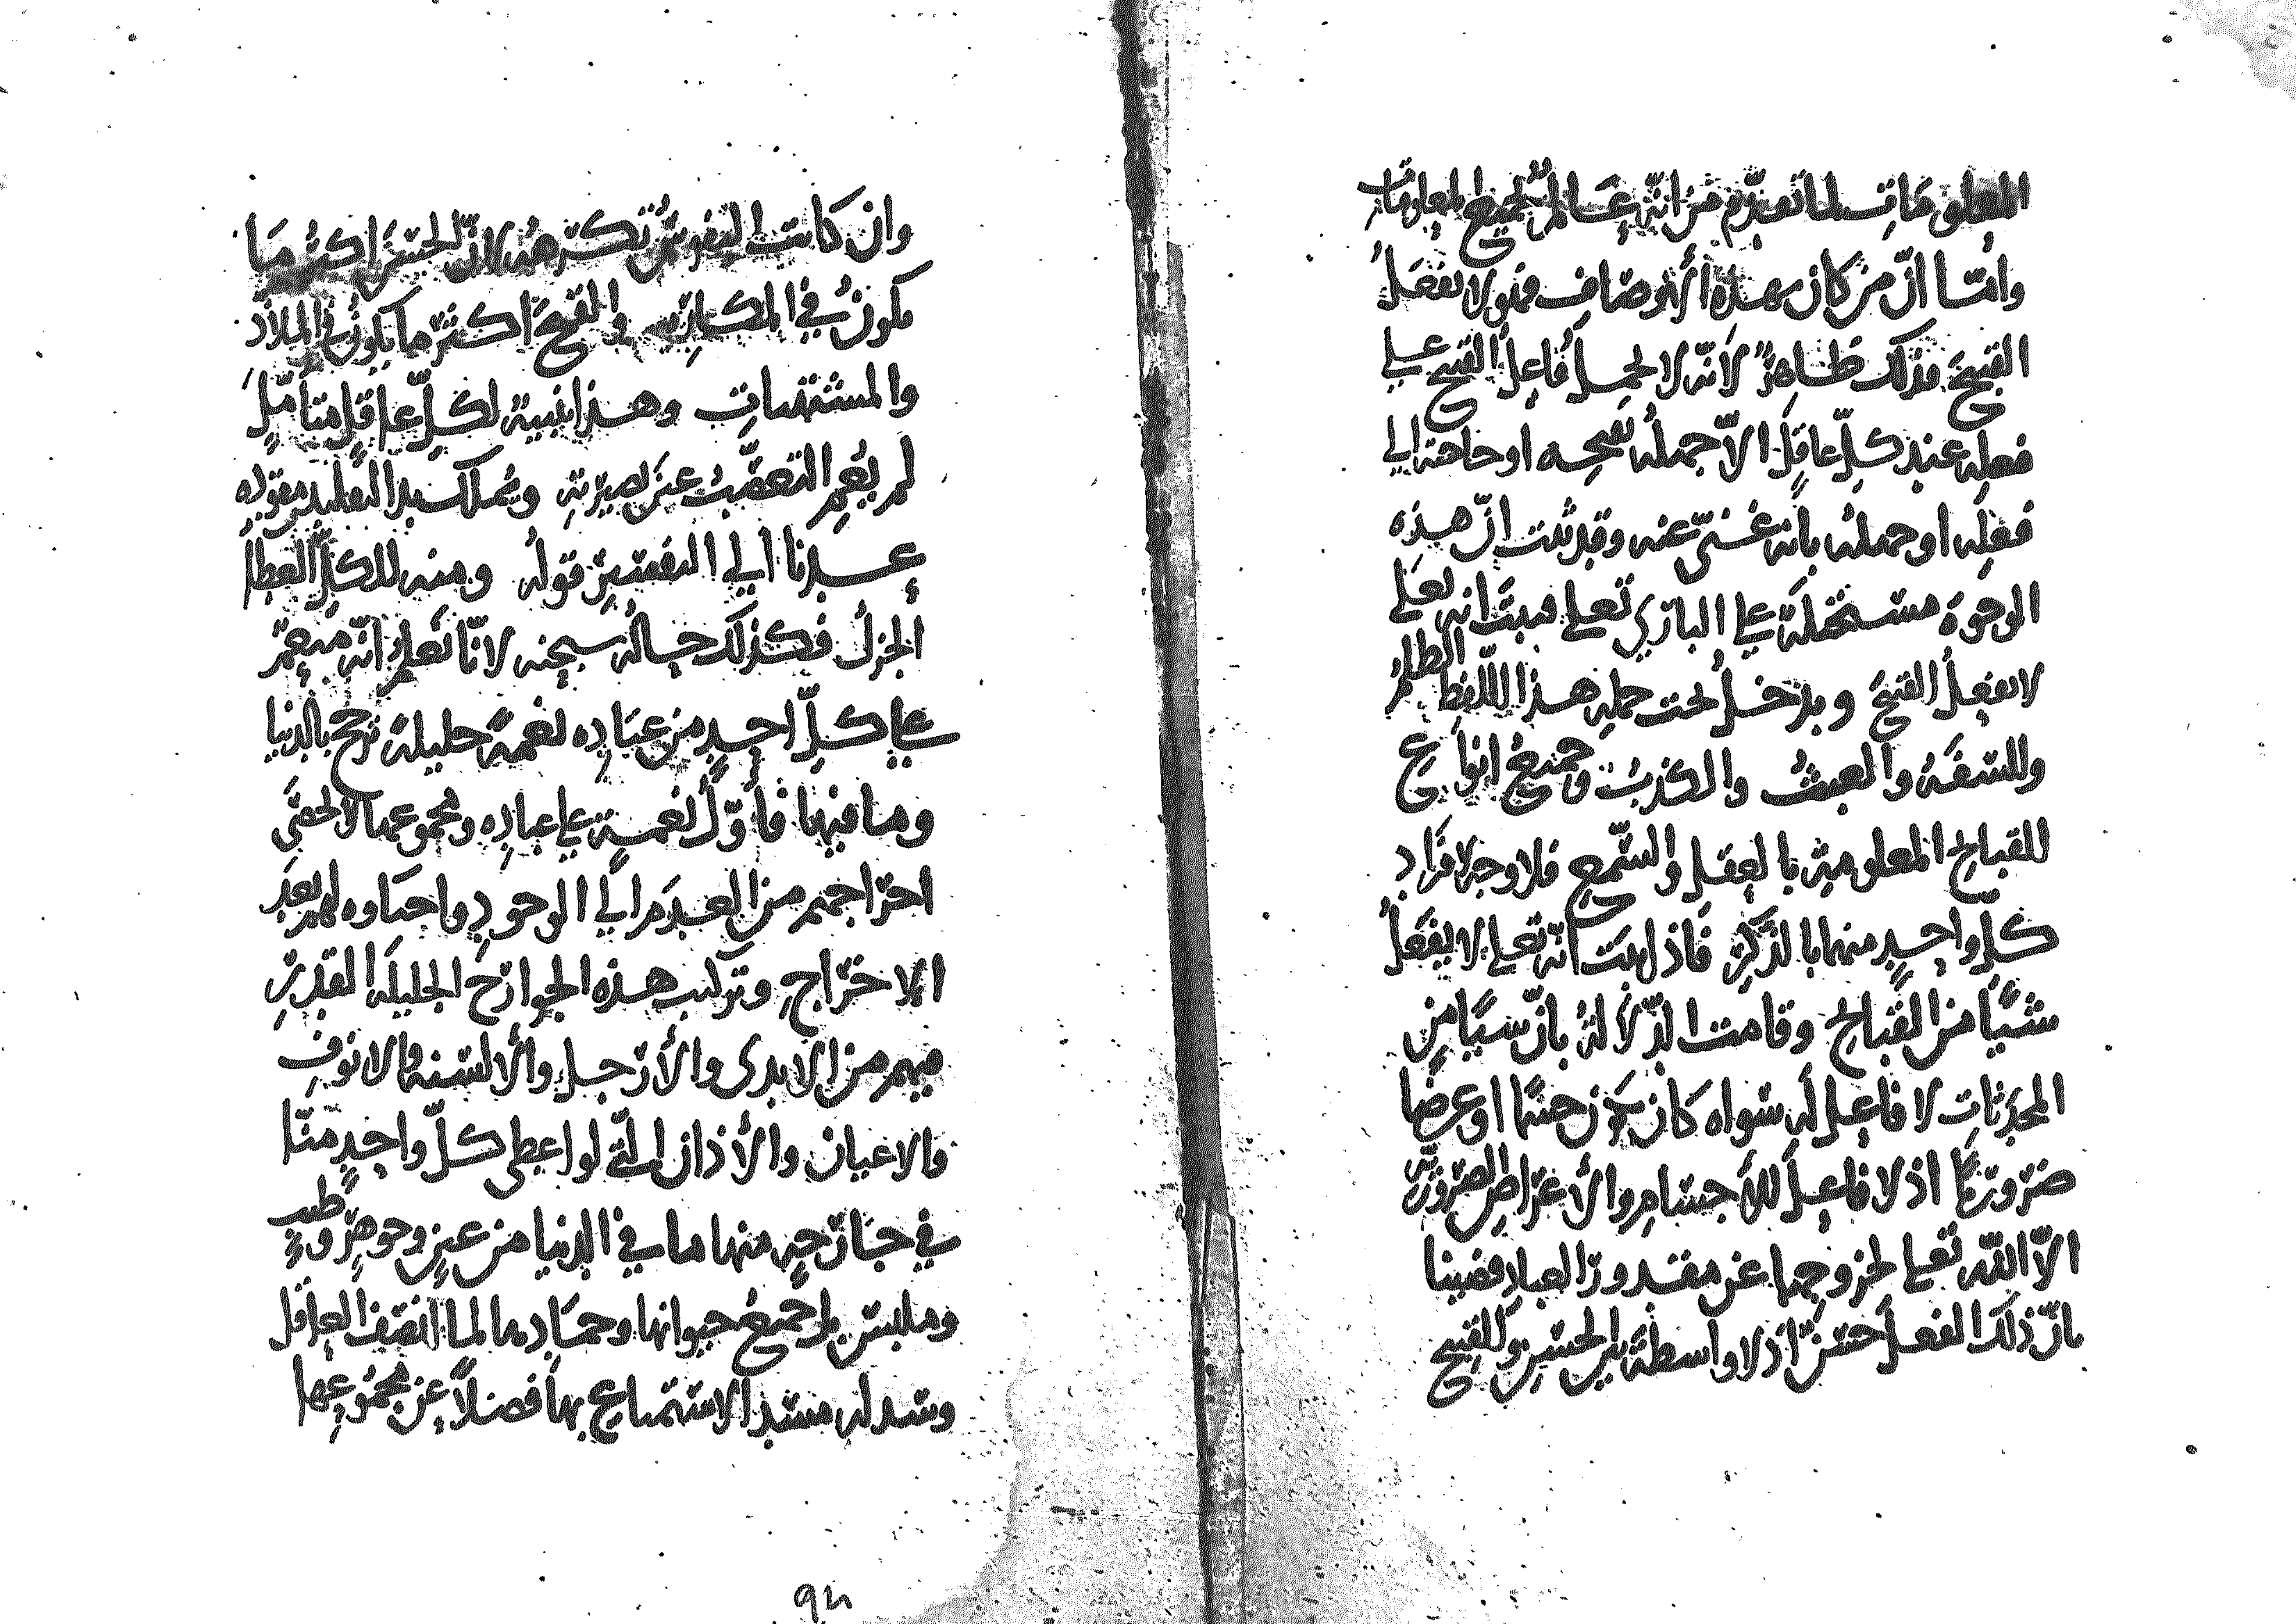 المعلومات لما تقدم من انه عالم لجميع المعلومات
واما ان من كان بهذه الأوصاف فهو لا يفعل
القبيح فذلك ظاهر لانه لا يحمل فاعل القبيح على
فعله عند كل عاقل الا جهله بقبحه او حاجته الى
فعله او جهله بانه غني عنه وقد ثبت ان هذه
الوجوه مستحيلة على الباري تعلى فثبت انه تعلى
لا يفعل القبيح ويدخل تحت جملة هذا اللفظ الظلم
والسفه والعبث والكذب وجميع انواع
القبائح المعلومة بالعقل والسمع فلا وجه لافراد
كل واحد منها بالذكر فاذا ثبت انه تعلى لا يفعل
شيأ من القبائح وقامت الدلالة بان شيأ من
المحدثات لا فاعل له سواه كان حسنا او عرضا
ضروريا اذ لا فاعل للأجسام والأعراض الضرورية
الا الله تعلى لخروجها عن مقدور العباد قضينا
بان ذلك الفعل حسن اذ لا واسطة بين الحسن والقبيح
وان كانت النفوس تكرهه لان الحسن اكثر ما
يكون في المكاره والقبيح اكثر ما يكون في الملاذ
والمشتهيات وهذا تنبيه لكل عاقل متأمل
لم يعم التعصب عين بصيرته ويملك يد التقليد مقوده
عدنا الى التفسير قوله ومنه للكل العطا
الجزل فكذلك حاله سبحنه لانا نعلم انه منعم
على كل احد من عباده نعمة جليلة ترجح بالدنيا
وما فيها فأول نعمه على عباده ومجموعها لا تحصى
اخراجهم من العدم الى الوجود واحياوه لهم بعد
الاخراج وتركيب هذه الجوارح الجليلة القدر
فيهم من الايدى والأرجل والألسنة والانوف
والاعيان والأذان التي لو اعطي كل واحد منا
في جارحة منها ما في الدنيا من عين وجوهر وطيب
وملبس بل جميع حيوانها وجمادها لما انتصف العاقل
وسد له مسد الاستمتاع بها فضلا عن مجموعها
٩٣